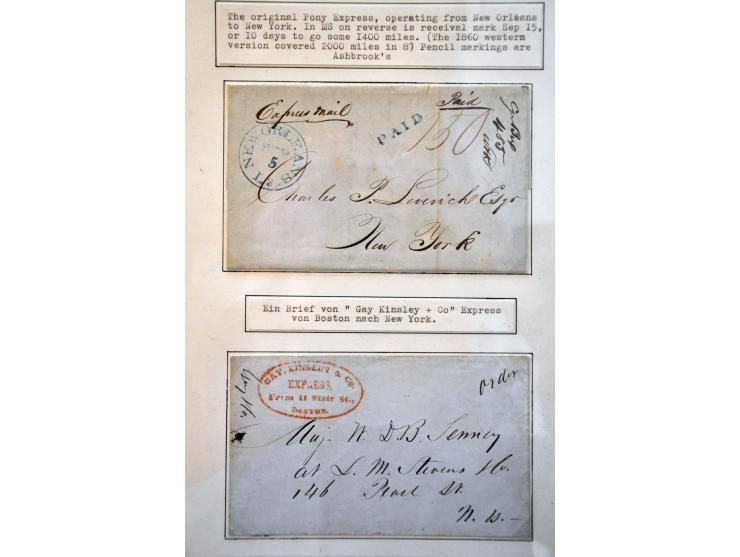 The original Pony Express, operating from New Orleans
to New York. In MS on reverse is receival mark Sep 15,
or 10 days to go some 1400 miles. (The 1860 western
version covered 2000 miles in 8) Pencil markings are
Ashbrook's
Express Mail
Paid
PAID
150
NEW ORLEANS
5
Charles P. Leverich Esqr
New York
Ein Brief von " Gay Kinsley + Co" Express
von Boston nach New York.
GAY, KINSLEY & Co.
EXPRESS,
From 11 State St.,
BOSTON.
order
Maj. W. D.B.
at L. M. Stevens & Co.
146 Pearl St.
N. Y.